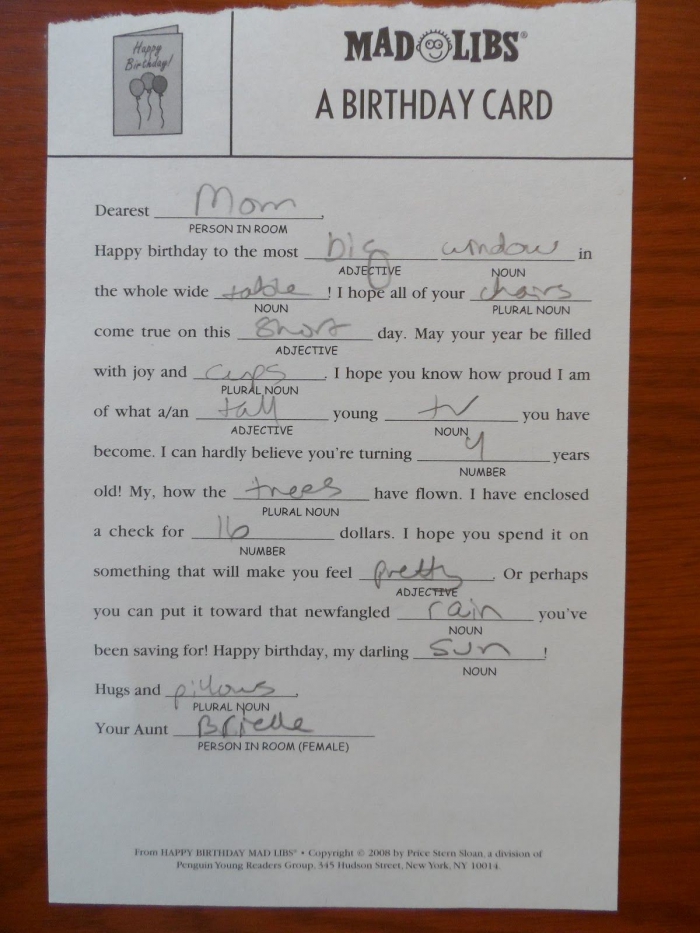 Happy
Birthday!
MAD LIBS®
A BIRTHDAY CARD
Dearest Mom,
PERSON IN ROOM
Happy birthday to the most big window in
ADJECTIVE NOUN
the whole wide table! I hope all of your chairs
NOUN PLURAL NOUN
come true on this short day. May your year be filled
ADJECTIVE
with joy and cups. I hope you know how proud I am
PLURAL NOUN
of what a/an tall young tv you have
ADJECTIVE NOUN
become. I can hardly believe you're turning 4 years
NUMBER
old! My, how the trees have flown. I have enclosed
PLURAL NOUN
a check for 16 dollars. I hope you spend it on
NUMBER
something that will make you feel pretty. Or perhaps
ADJECTIVE
you can put it toward that newfangled rain you've
NOUN
been saving for! Happy birthday, my darling sun!
NOUN
Hugs and pillows,
PLURAL NOUN
Your Aunt Brielle
PERSON IN ROOM (FEMALE)
From HAPPY BIRTHDAY MAD LIBS® • Copyright © 2008 by Price Stern Sloan, a division of
Penguin Young Readers Group, 345 Hudson Street, New York, NY 10014.